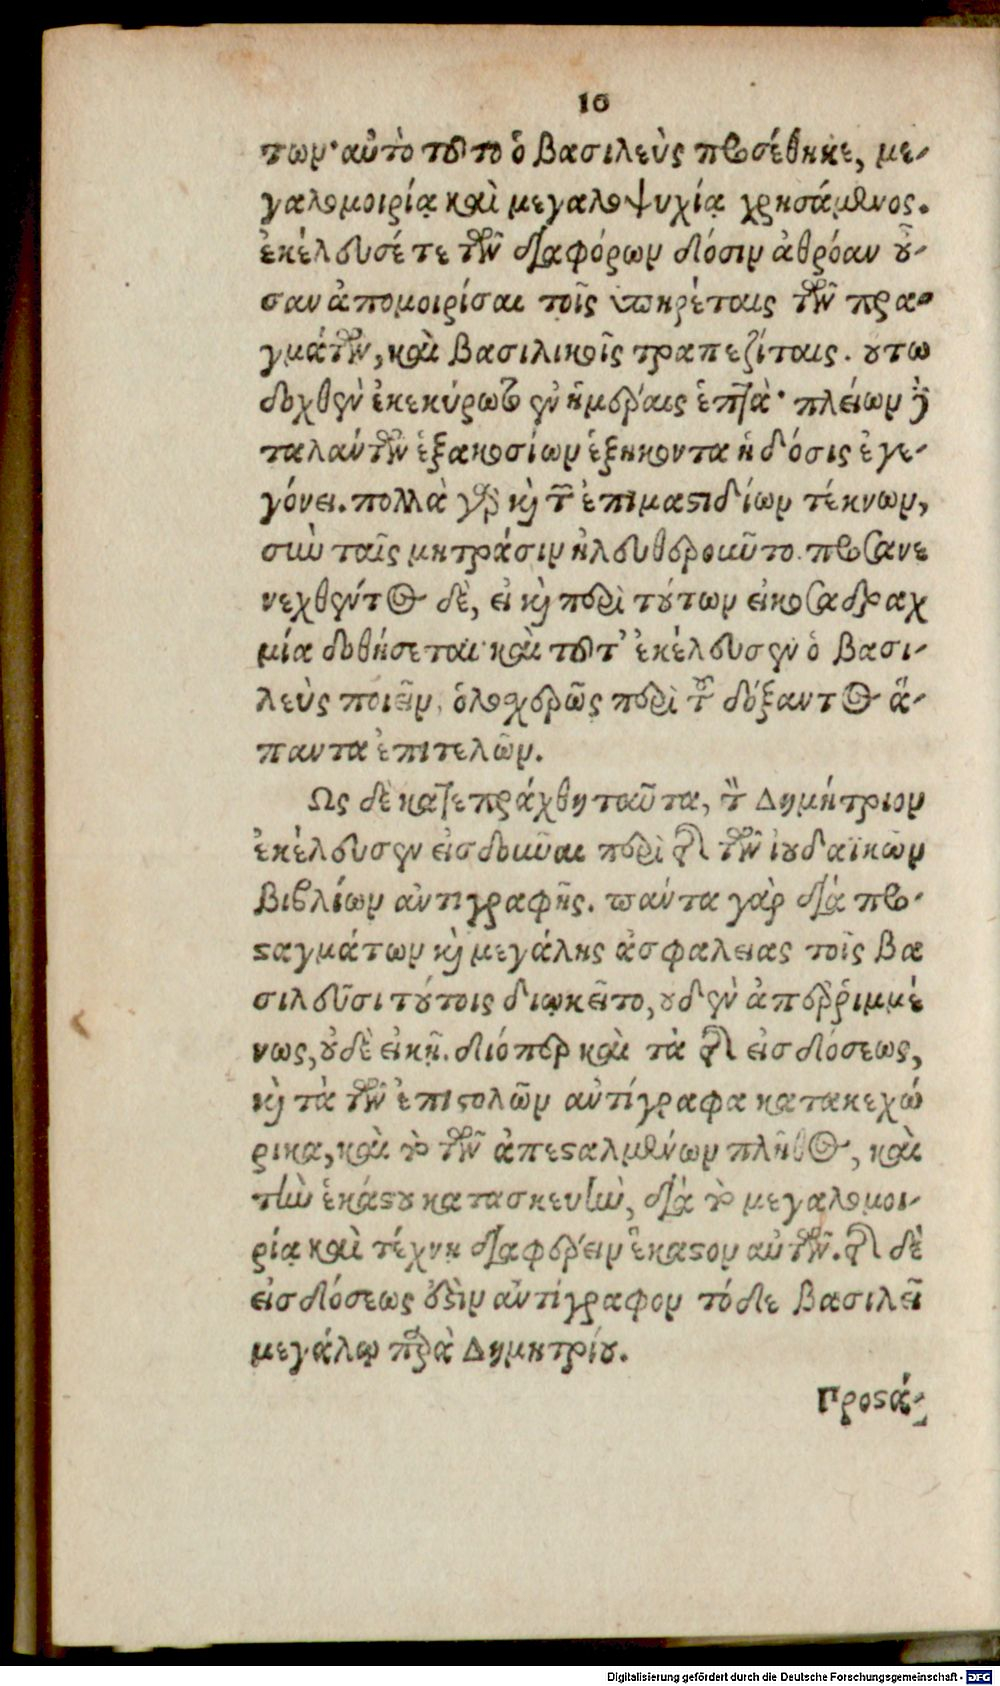 10
των· αὐτὸ τοῦτο ὁ βασιλεὺς προσέθηκε, με-
γαλομοιρίᾳ καὶ μεγαλοψυχίᾳ χρησάμενος.
ἐκέλευσέ τε τῶν διαφόρων δόσιν ἀθρόαν οὖ-
σαν ἀπομοιρίσαι τοῖς ὑπηρέταις τῶν πρα-
γμάτων, καὶ βασιλικοῖς τραπεζίταις. οὕτω
δοχθὲν ἐκεκύρωτο ἐν ἡμέραις ἑπτά· πλείων δὲ
ταλάντων ἑξακοσίων ἑξήκοντα ἡ δόσις ἐγε-
γόνει. πολλὰ γὰρ καὶ τῶν ἐπιμαστιδίων τέκνων,
σὺν ταῖς μητράσιν ἠλευθεροῦντο. προσανε
νεχθέντος δὲ, εἰ καὶ περὶ τούτων εἰκοσαδραχ
μία δοθήσεται· καὶ τοῦτ' ἐκέλευσεν ὁ βασι-
λεὺς ποιεῖν, ὁλοχερῶς περὶ τοῦ δόξαντος ἅ-
παντα ἐπιτελῶν.
Ως δὲ κατεπράχθη ταῦτα, τὸν Δημήτριον
ἐκέλευσεν εἰσδοῦναι περὶ τῆς τῶν ἰουδαϊκῶν
βιβλίων ἀντιγραφῆς. πάντα γὰρ διὰ προ-
σταγμάτων καὶ μεγάλης ἀσφαλείας τοῖς βα
σιλεῦσι τούτοις διῳκεῖτο, οὐδὲν ἀπεῤῥιμμέ
νως, οὐδὲ εἰκῆ. διόπερ καὶ τὰ τῆς εἰσδόσεως,
καὶ τὰ τῶν ἐπιστολῶν ἀντίγραφα κατακεχώ
ρικα, καὶ τὸ τῶν ἀπεσταλμένων πλῆθος, καὶ
τὴν ἑκάστου κατασκευὴν, διὰ τὸ μεγαλομοι-
ρίᾳ καὶ τέχνῃ διαφέρειν ἕκαστον αὐτῶν. τῆς δὲ
εἰσδόσεως ἐστὶν ἀντίγραφον τόδε· βασιλεῖ
μεγάλῳ παρὰ Δημητρίου.
Προστά-
Digitalisierung gefördert durch die Deutsche Forschungsgemeinschaft - DFG